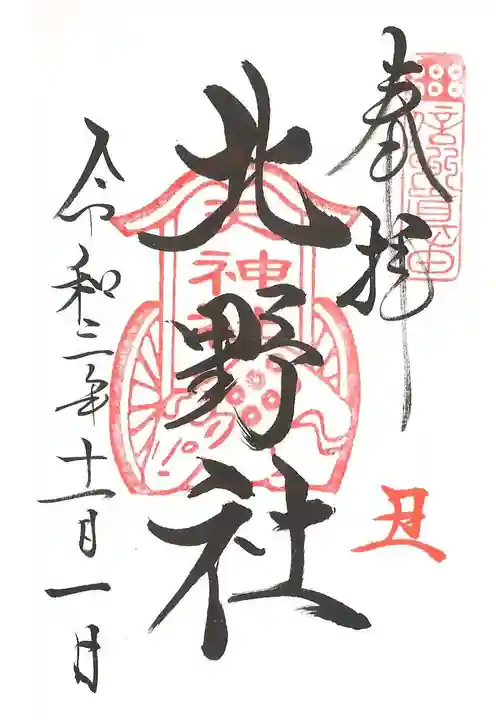 奉拝
丑
北野社
天神
令和三年十一月一日